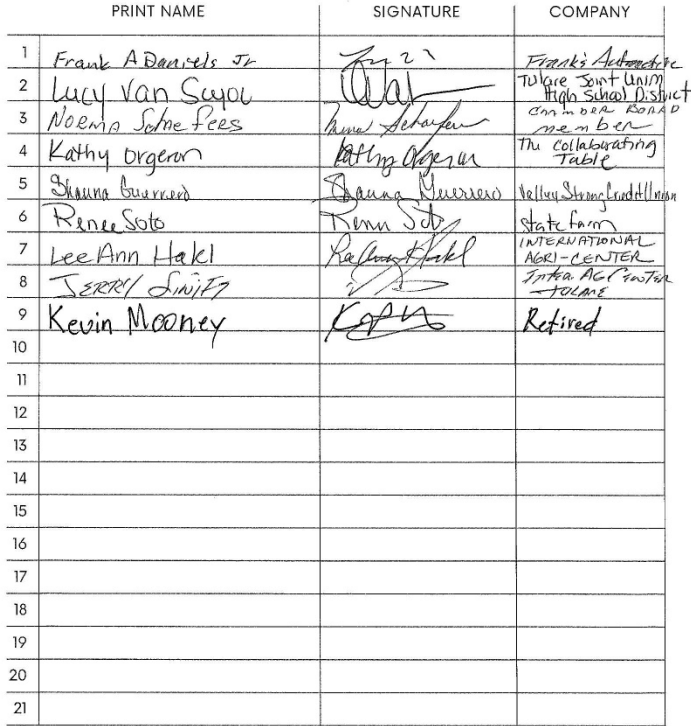 PRINT NAME SIGNATURE COMPANY
1 Frank A Daniels Jr Frank's Automotive
2 Lucy Van Scyoc Tulare Joint Union
High School District
3 Norma Chamber Board
member
4 Kathy Orgeron Kathy Orgeron The Collaborating
Table
5 Shauna Guerrero Shauna Guerrero Valley Strong Credit Union
6 Renee Soto Renee Soto State Farm
7 LeeAnn Hakl LeeAnn Hakl INTERNATIONAL
AGRI-CENTER
8 JERRY Inter. AG Center
TULARE
9 Kevin Mooney Retired
10
11
12
13
14
15
16
17
18
19
20
21